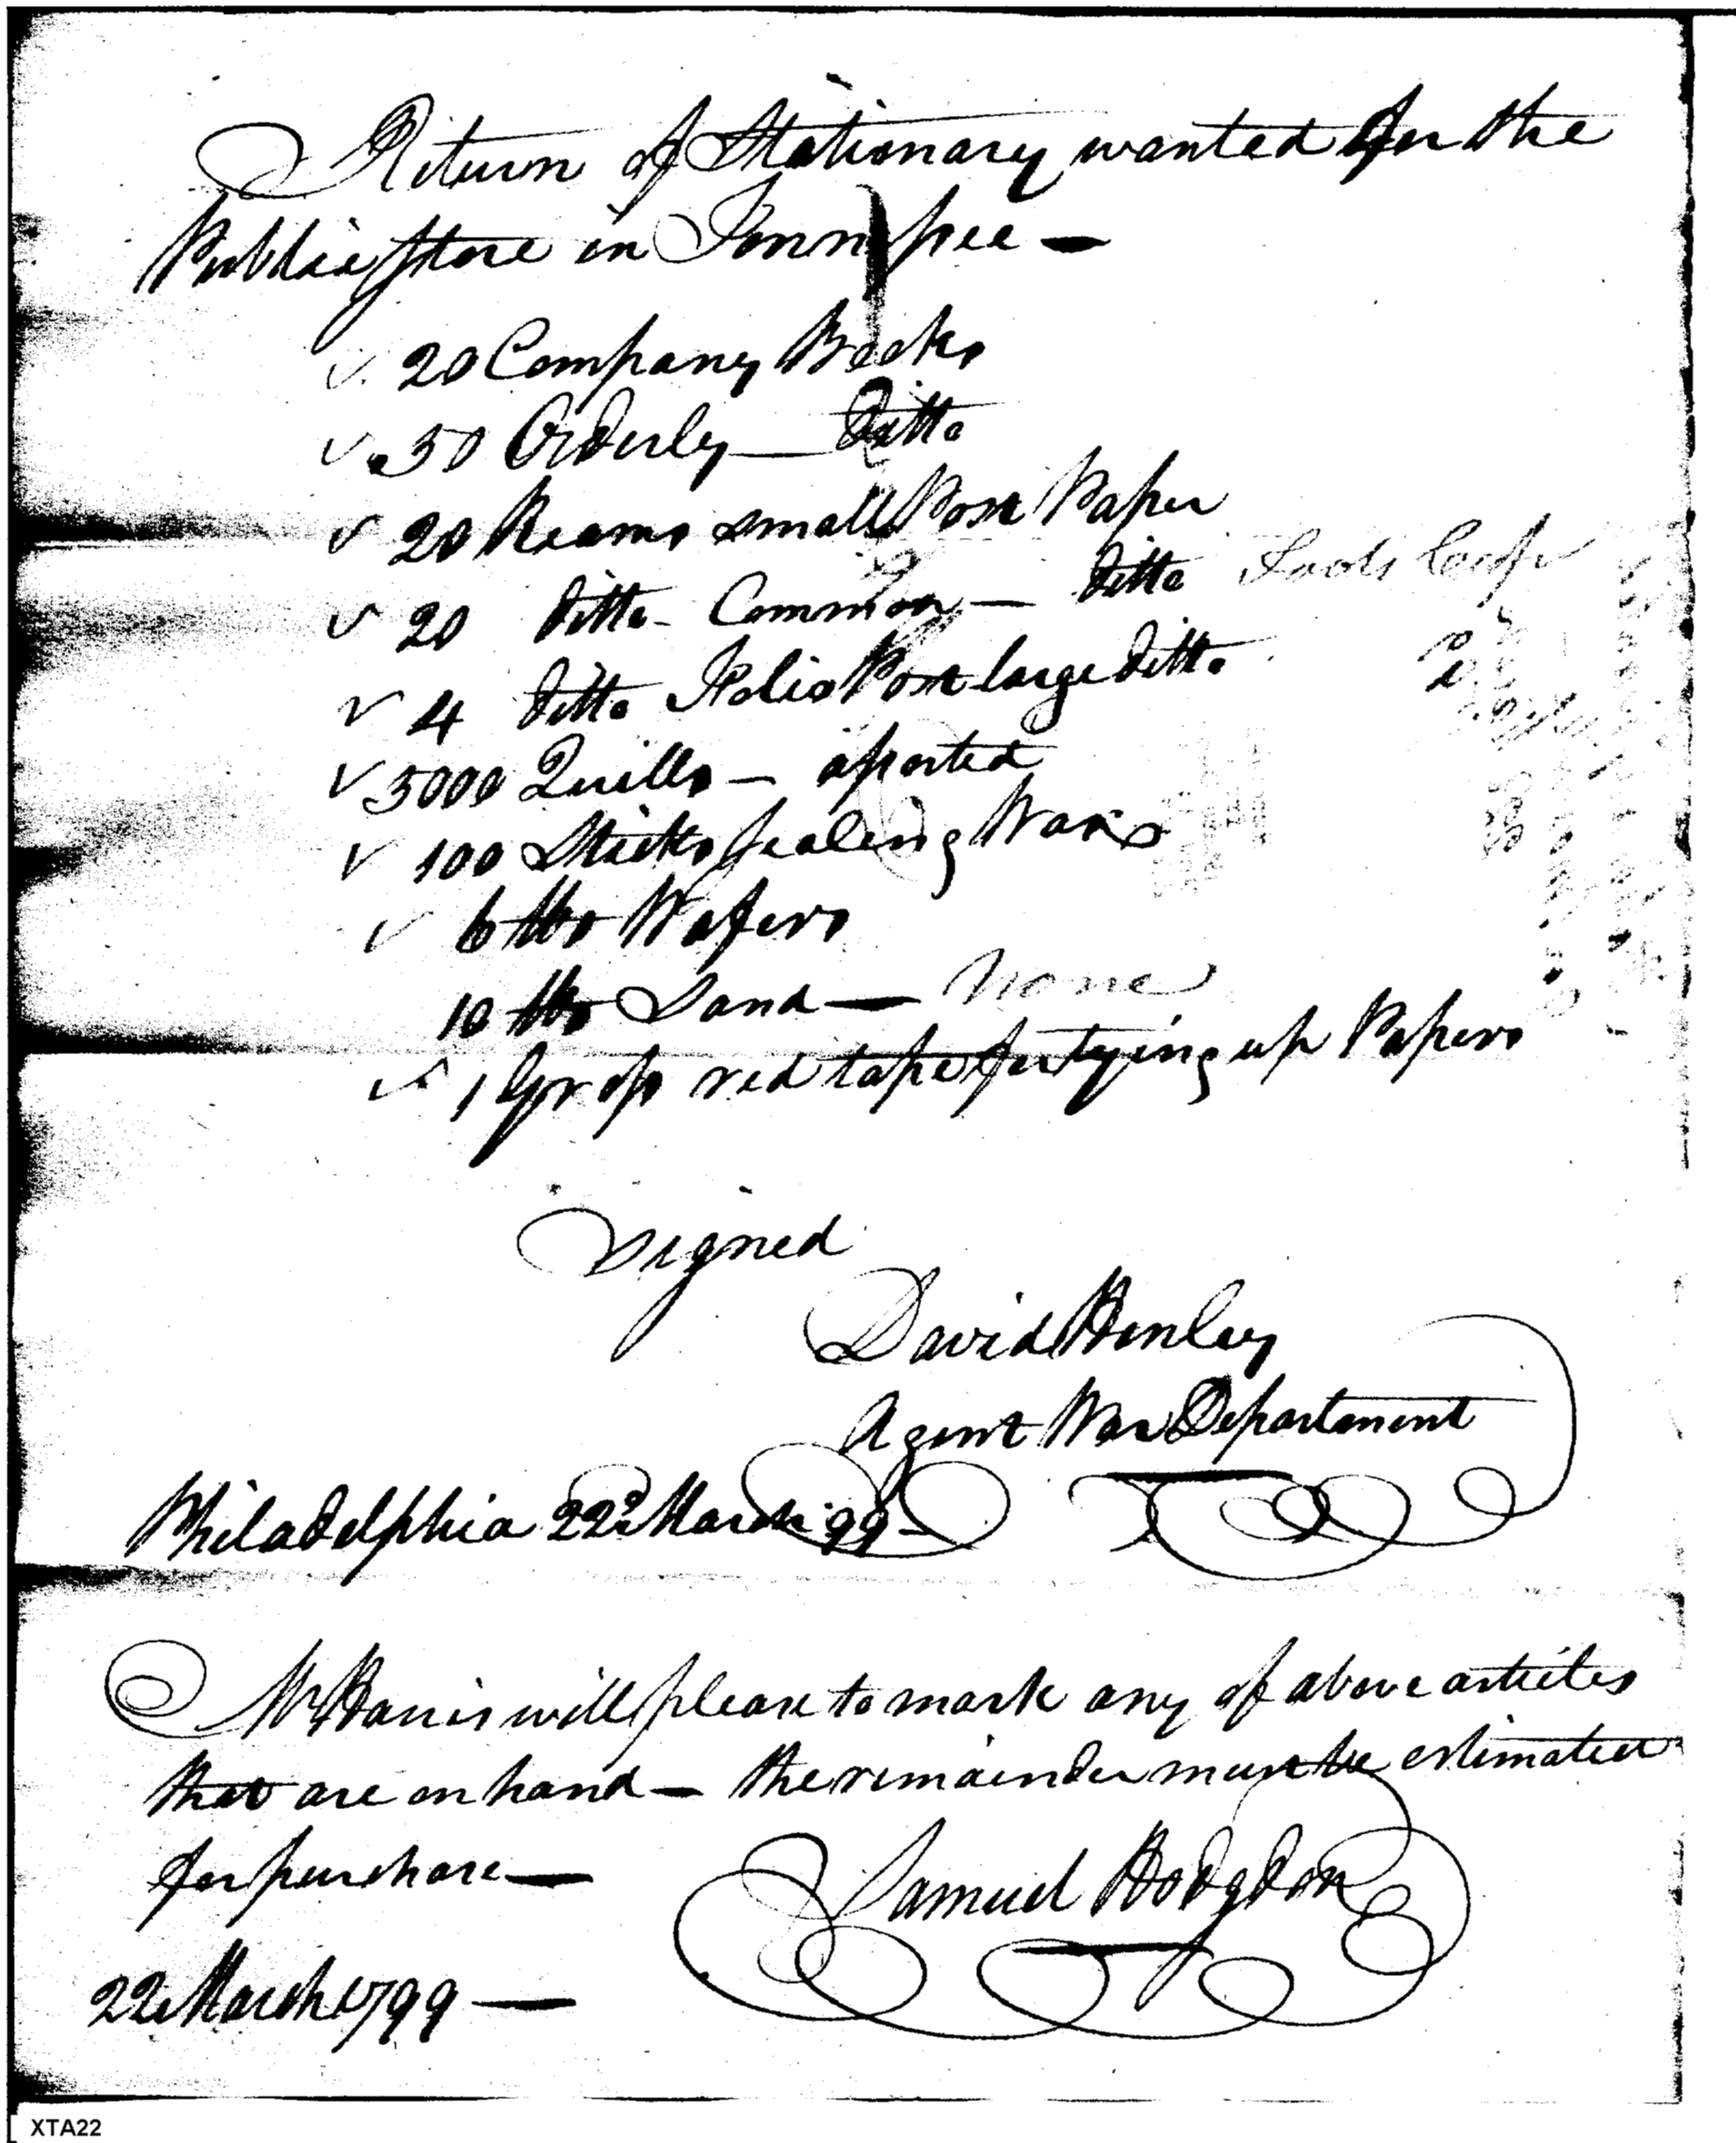 Return of Stationary wanted for the
Public Store in Tennessee —
✓ 20 Company Books
✓ 50 Orderly — Ditto
✓ 20 Reams small Post Paper
✓ 20 ditto - Common — ditto Fools Cap
✓ 4 ditto Folio Post large ditto
✓ 5000 Quills — assorted
✓ 100 Sticks sealing Wax
✓ 6 lbs Wafers
10 lbs Sand — None
✓ 1 Gross red tape for tying up Papers
Signed
David Henley
Agent War Department
Philadelphia 22d March 99 —
Mr Harris will please to mark any of above articles
that are on hand — the remainder must be estimated
for purchase —
Samuel Hodgdon
22 March 1799 —
XTA22